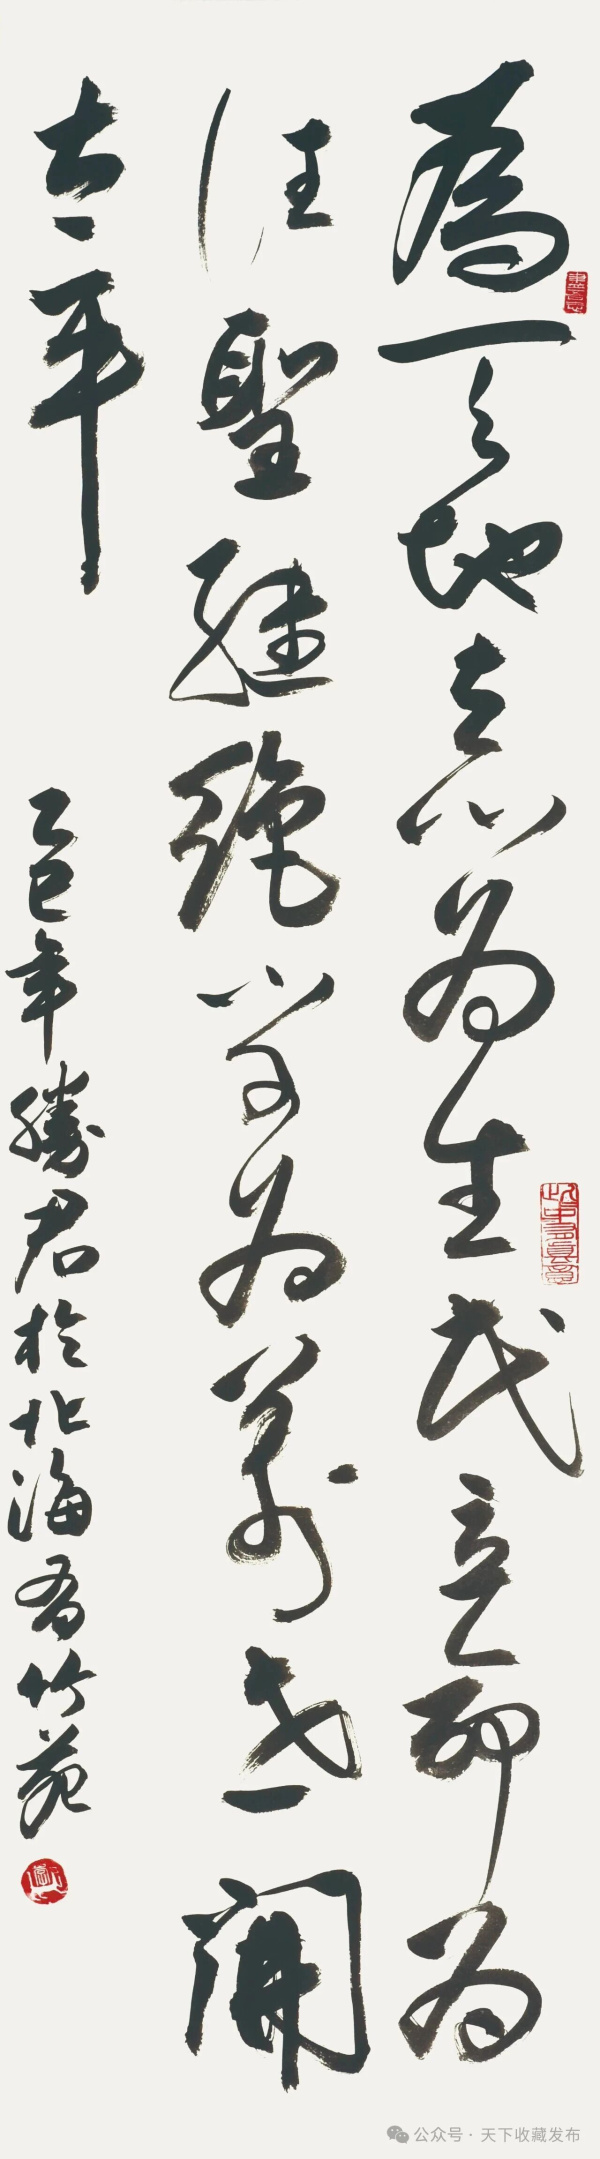 為天地立心为生民立命为
往聖継绝学为萬世開
太平
乙巳年勝君於北海有竹苑
公众号·天下收藏发布